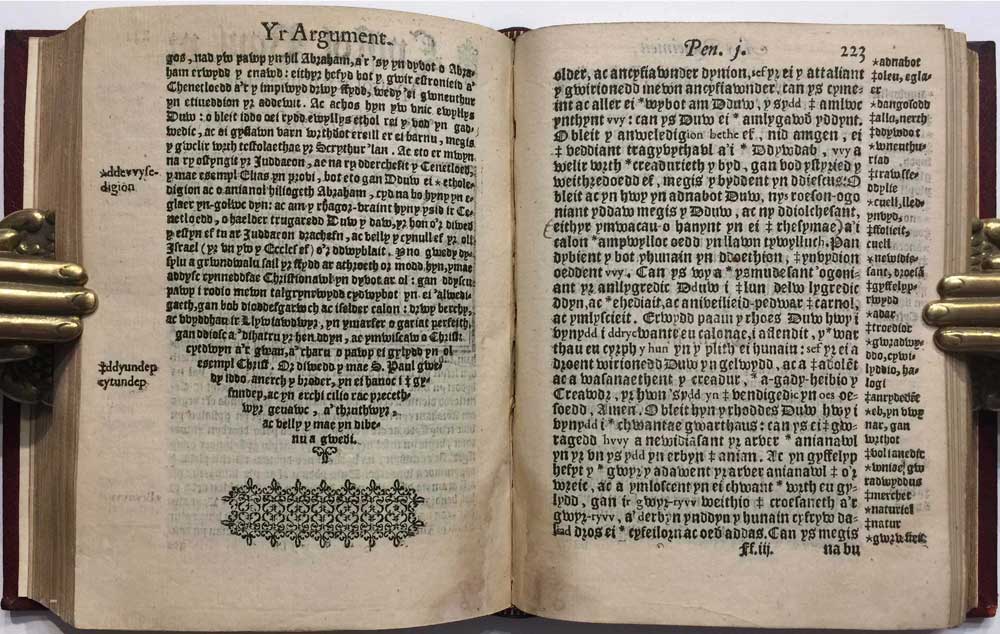 Yr Argument.
gos, nad yw pawp yn hil Abraham, a'r 'sy yn dyvot o Abra-
ham erwydd y cnawd: eithyr hefyd bot y gwir estronieid a'
Chenetloedd a'r y impiwyd drwy ffydd, wedy 'si gwneuthur
yn etiueddion yr addewit. Ac achos hyn yw vnic ewyllys
Duw: o bleit iddo oei rydd ewyllys ethol rei y vod yn gad-
wedic, ac ei gyfiawn varn wrthdot ereill er ei barnu, megis
y gwelir wrth testolaethae yr Scrythur'lan. Ac eto er mwyn
na ry ostyngit yr Juddaeon, ac na ry dderchefit y Cenetloed,
y mae esempl Elias yn provi, bot eto gan Dduw ei *ethole-
digion ac o anianol hiliogeth Abraham, cyd na bo hynny yn e-
glaer yn-golwc dyn: ac am y rhagor-vraint hyny ysid ir Ce-
netloedd, o haelder trugaredd Duw y daw, yr hon o'r diwed
y estyn ef tu ar Juddaeon drachefn, ac velly y cynullef yr oll
Israel (yr vn yw y Ecclesef) o'r ddwyblait. Yno gwedy dy-
sylu a grwndwalu sail yr ffydd ar athroeth or modd hyn, ymae
addysc cynneddfae Christionawl yn dyvot ar ol: gan ddyscu
pawp i rodio mewn talgrynrwydd cydwybot yn ei 'alwedi-
gaeth, gan bob dioddefgarwch ac iselder calon: drwy berchy,
ac vvyddhan ir Llywiawdwyr, yn ymarfer o gariat perfeith,
gan ddiosc a 'dihatru yr hen ddyn, ac ymwiscaw a Christ
cytdwyn a'r gwan, a'charu o pawp ei gylydd yn ol
esempl Christ. Or diwedd y mae S. Paul gwe-
dy iddo anerch y broder, yn ei hanoc i ‡gy-
fundep, ac yn erchi cilio rac preceth-
wyr geuawc, a' thruthwyr,
ac velly y mae yn dibe-
nu a gwedi.
*ddevvyse-
digion
‡ddyundep
cytundep
Pen. j. 223
older, ac ancyfiawnder dynion, sef yr ei y attaliant
y gwirionedd mewn ancyfiawnder, can ys cyme-
int ac aller ei *wybot am Dduw, y sydd ‡amlwc
ynthynt vvy: can ys Duw ei *amlygawdd yddynt.
O bleit y anweledigion bethe ef, nid amgen, ei
‡veddiant tragyvythavl a'i *Ddywdab, vvy a
welir wrth *creadurieth y byd, gan bod ystyried y
weithredoedd ef, megis y byddent yn ddiescus: O
bleit ac yn hwy yn adnabot Duw, nys roeson-ogo
niant yddaw megis y Dduw, ac ny ddiolchesant,
eithyr ymwacau-o hanynt yn ei ‡rhesymae) a'i
calon *ampwylloc oedd yn llawn tywylluch. Pan
dybient y bot yhunain yn ddoethion, ‡ynvydion
oeddent vvy. Can ys wy a *ysmudesant 'ogoni-
ant yr anllygredic Dduw i ‡lun delw lygredic
ddyn, ac *ehediait, ac aniveilieid-pedwar ‡carnol,
ac ymlyscieit. Erwydd paam y rhoes Duw hwy i
vynydd i ddrycwante eu calonae, i aflendit, y *war
thau eu cyrph y hun yn y plith ei hunain: sef yr ei a
droent wirionedd Duw yn gelwydd, ac a ‡adolēt
ac a wasanaethent y creadur, *a-gady-heibio y
Creawdr, yr hwn 'sydd yn ‡vendigedic yn oes oe-
soedd, Amen. O bleit hyn y rhoddes Duw hwy i
vynydd i *chwantae gwarthaus: can ys ei ‡gw-
ragedd hvvy a newidiasant yr arver *anianawl
yn yr vn ys ydd yn erbyn ‡anian. Ac yn gyffelyp
hefyt y *gwyr y adawent yr arver anianawl ‡o'r
wreic, ac a ymloscent yn ei chwant *wrth eu gy-
lydd, gan ir gwyr-ryvv weithio ‡croesaneth a'r
gwyr-ryvv, a' derbyn ynddyn y hunain cyfryw da-
lad dros ei *cyfeilorn ac oed addas. Can ys megis
Ff.iij. na bu
*adnabot
‡oleu, egla-
er
*dangosodd
‡alla, nerth
‡ddywdot
*wneuthu-
riad
‡trawsse-
ddylie
*cuell, lled-
ynbyd,
‡ffolieit,
cuell
*newidis-
sant, droesā
‡gyffelyp-
rwydd
*adar
‡troedior
*gwradwy-
ddo, cywi-
lyddio, ha-
logi
‡anrydedēt
*eb, yn vwy
nar, gan
wrthot
‡volianedic
*wniae gw
radwyddus
‡merchet
*naturiel
‡natur